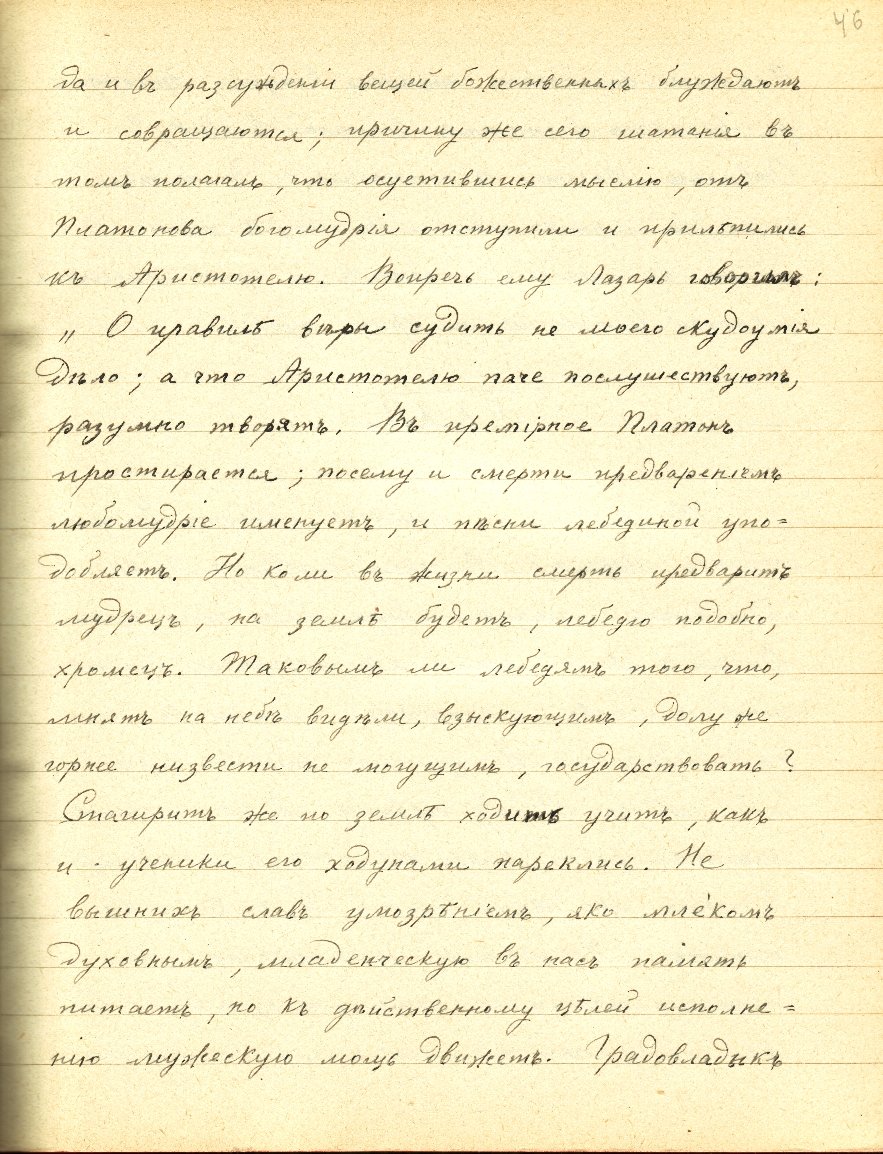 46
да и въ разсужденіи вещей божественныхъ блуждаютъ
и совращаются; причину же сего шатанія въ
томъ полагалъ, что осуетившись мыслію, отъ
Платонова богомудрія отступили и прилѣпились
къ Аристотелю. Вопречь ему Лазарь говоритъ:
„ О правилѣ вѣры судить не моего скудоумія
дѣло; а что Аристотелю паче послушествуютъ,
разумно творятъ. Въ премірное Платонъ
простирается; посему и смерти предвареніемъ
любомудріе именуетъ, и пѣсни лебединой упо=
добляетъ. Но коли въ жизни смерть предваритъ
мудрецъ, на землѣ будетъ, лебедю подобно,
хромецъ. Таковымъ ли лебедямъ того, что,
мнятъ на небѣ видѣли, взыскующимъ, долу же
горнее низвести не могущимъ, государствовать?
Стагиритъ же по землѣ ходить учитъ, какъ
и ученики его ходунами нареклись. Не
вышнихъ славъ умозрѣніемъ, яко млéкомъ
духовнымъ, младенческую въ насъ память
питаетъ, но къ дѣйственному цѣлей исполне=
нію мужескую мощь движетъ. Градовладыкъ